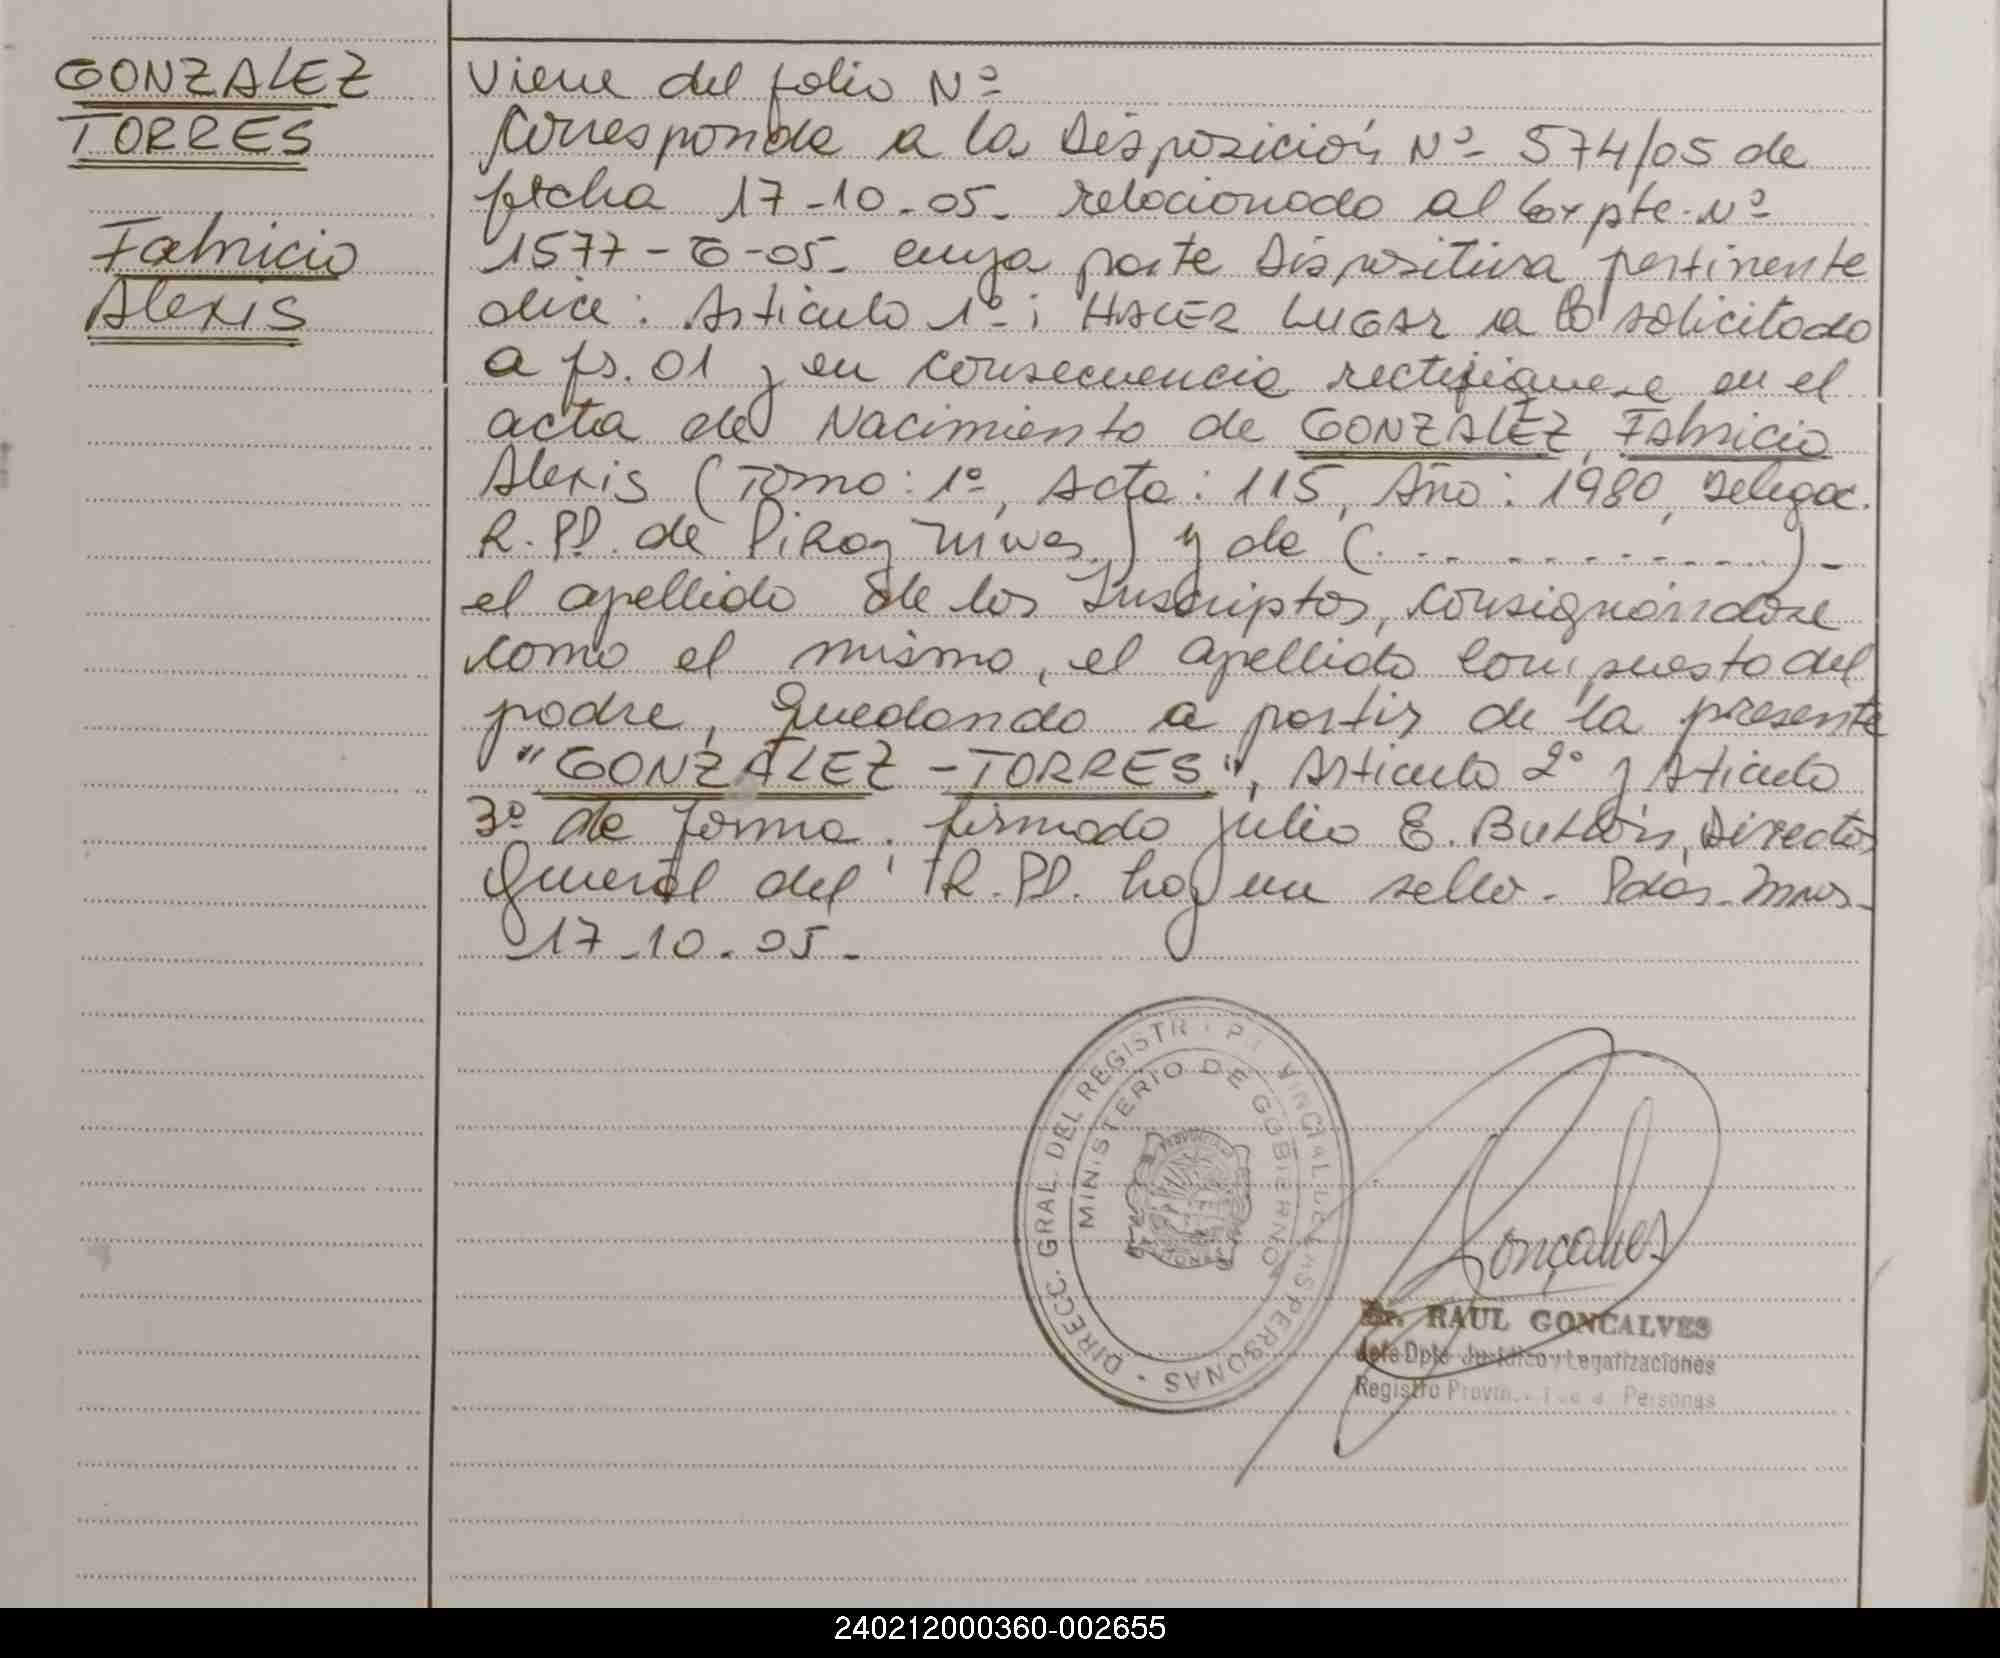 GONZALEZ
TORRES
Fabricio
Alexis
Viene del folio Nº
Corresponde a la Disposición Nº 574/05 de
fecha 17-10-05- relacionado al Expte. Nº
1577-G-05- cuya parte Dispositiva pertinente
dice: Articulo 1º: HACER LUGAR a lo solicitado
a fs. 01 y en consecuencia rectifiquese en el
acta de Nacimiento de GONZALEZ, Fabricio
Alexis (Tomo: 1º, Acta: 115, Año: 1980, Delegac.
R.PP. de Piray Mnes.) y de (. - - - - - - - - - -) -
el apellido de los Inscriptos, consignándose
como el mismo, el apellido compuesto del
padre, Quedando a partir de la presente
"GONZALEZ - TORRES", Articulo 2º y Aticulo
3º de forma. firmado Julio E. Director
General del R.PP. hay un sello. Pdas. Mnes.
17-10-05-
DIRECC. GRAL. DEL REGISTR. PROVINCIAL DE LAS PERSONAS
MINISTERIO DE GOBIERNO
Goncalves
Dr. RAUL GONCALVES
Jefe Dpto Juridico y Legalizaciones
Registro Provin. de la Personas
240212000360-002655